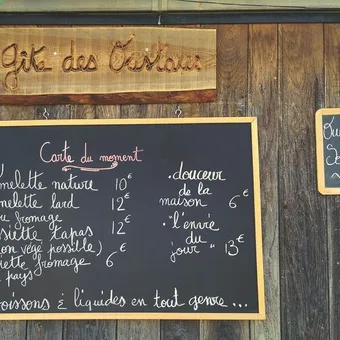 Gîte des Oustaus
Carte du moment
melette nature 10€
melette lard 12€
u fromage
siette tapas 12€
on végé possible)
iette fromage 6€
pays
.douceur
de la
maison 6€
."l'envie
du
jour" 13€
oissons & liquides en tout genre...